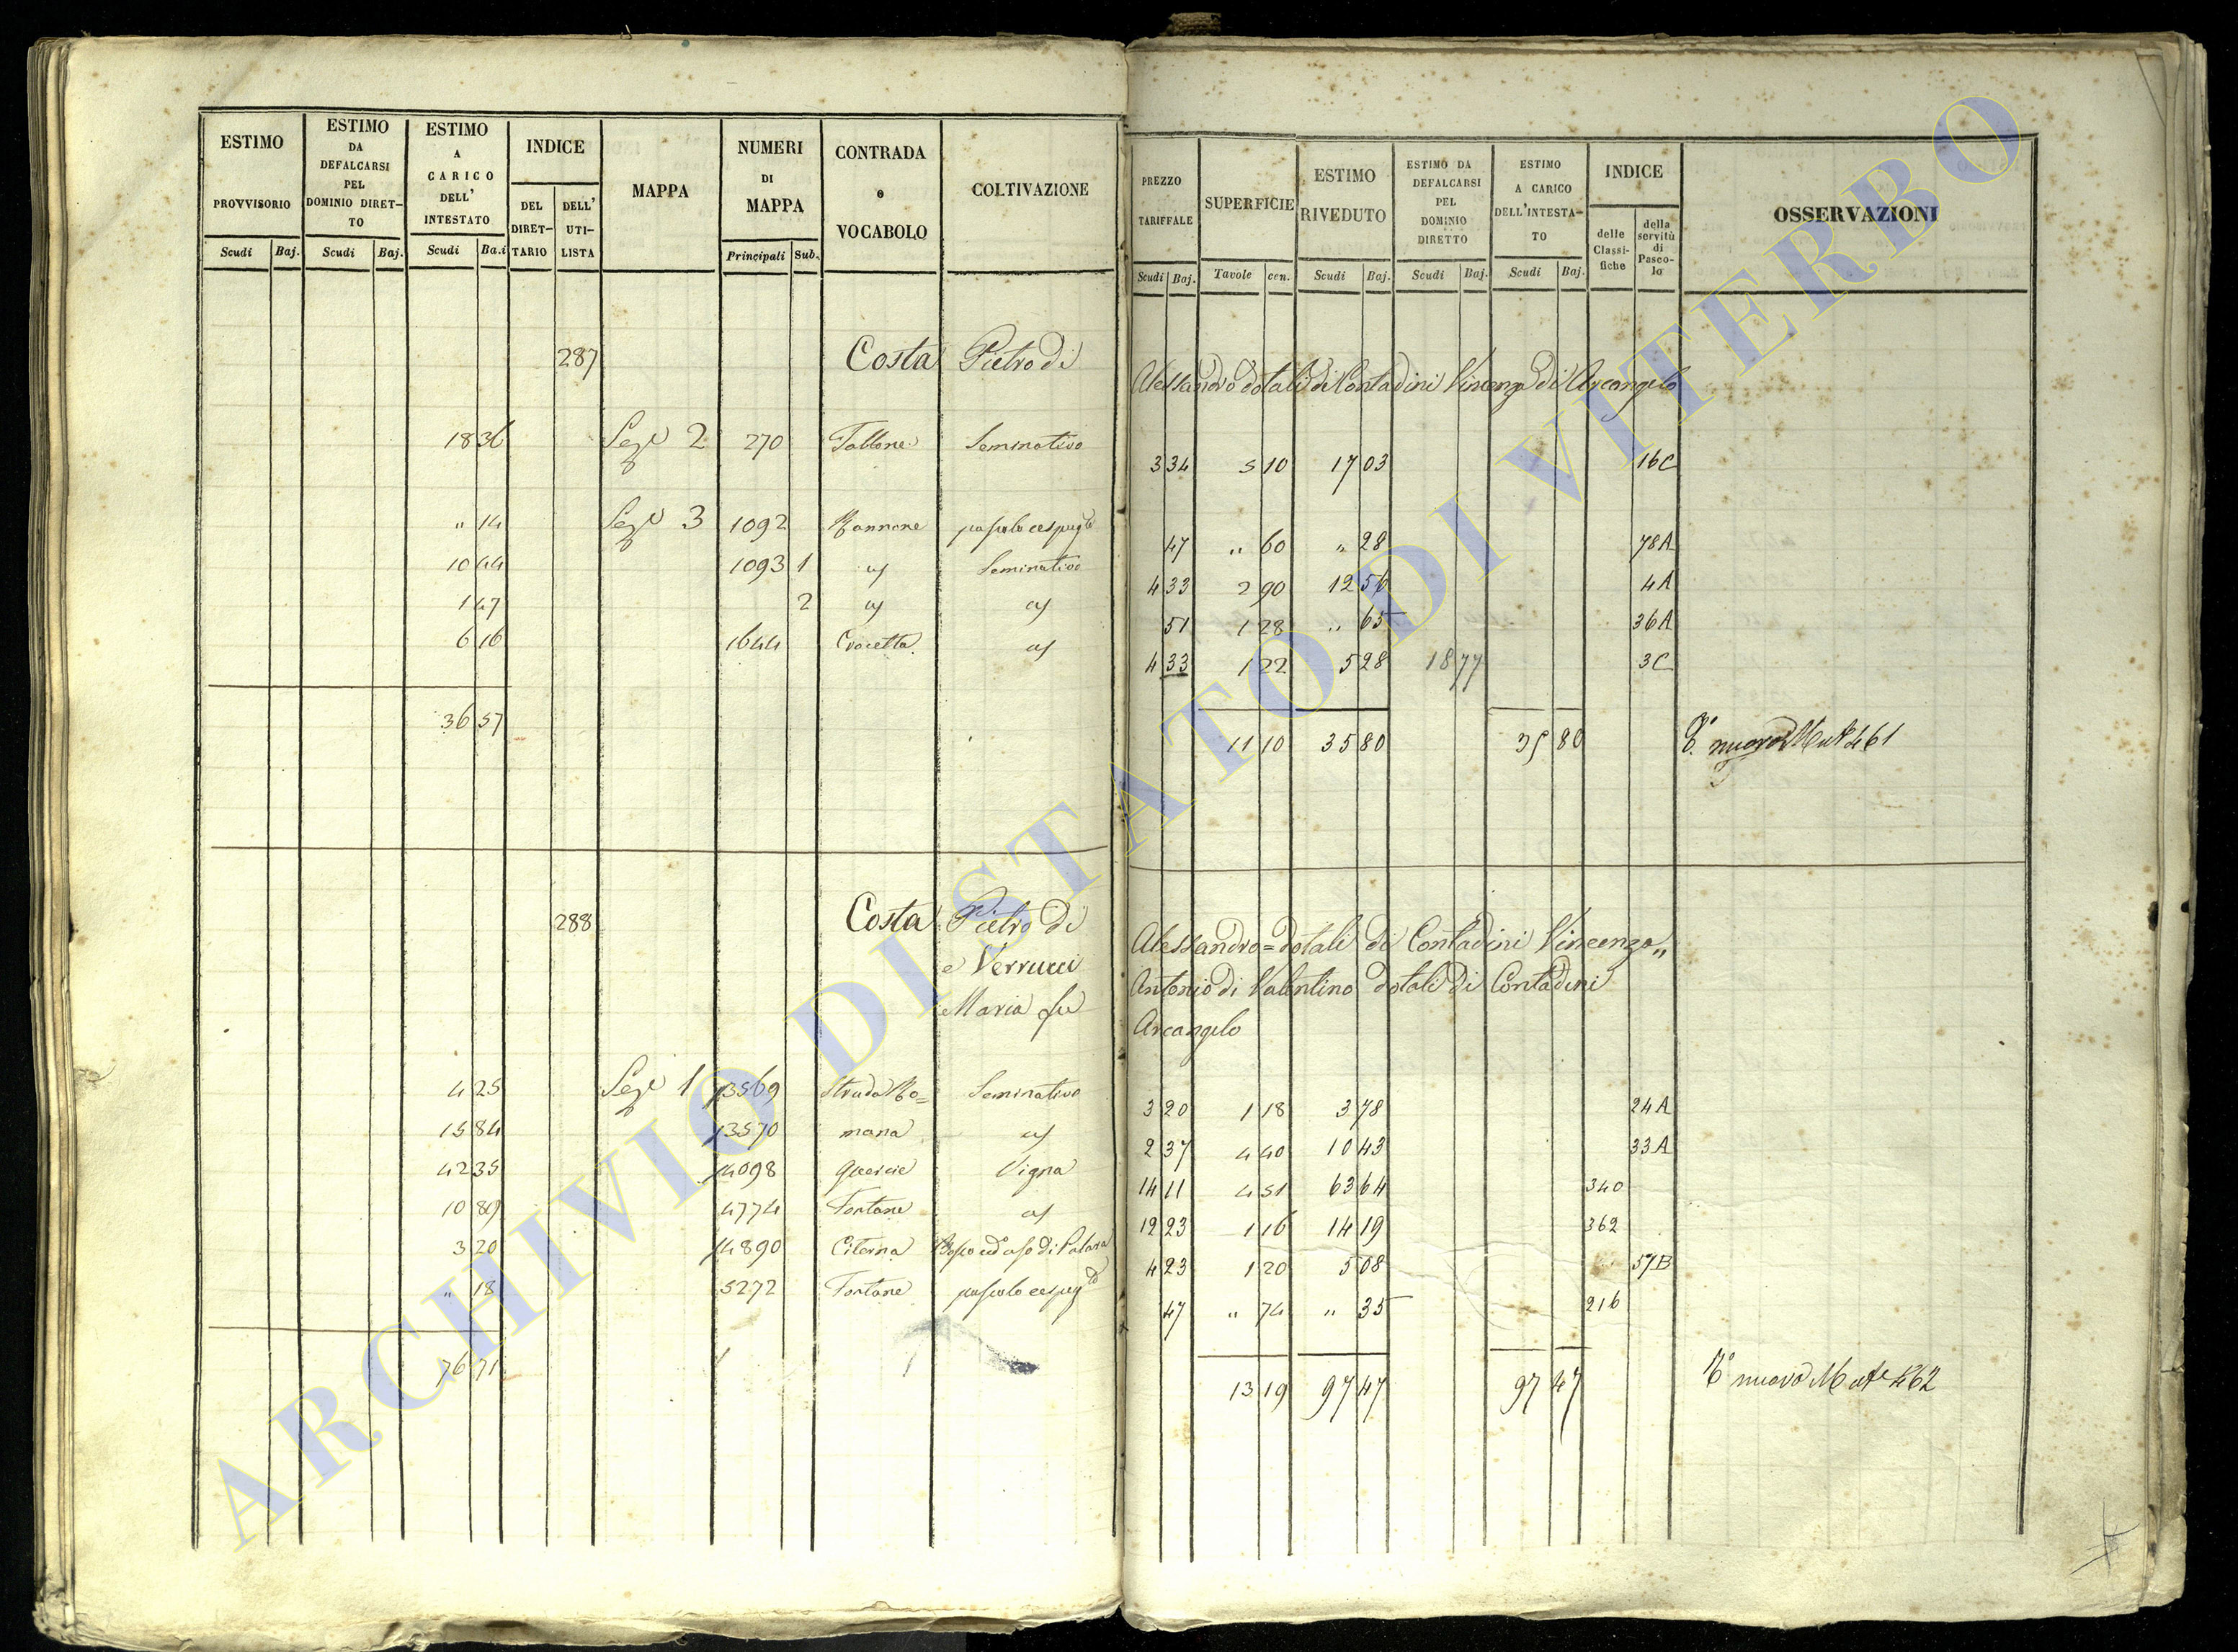 ESTIMO PROVVISORIO
ESTIMO DA DEFALCARSI PEL DOMINIO DIRET-TO
ESTIMO A CARICO DELL' INTESTATO
INDICE
DEL DIRET-TARIO
DELL' UTI-LISTA
MAPPA
NUMERI DI MAPPA
CONTRADA e VOCABOLO
COLTIVAZIONE
Scudi Baj. Scudi Baj. Scudi Ba.i Principali Sub.
PREZZO TARIFFALE
SUPERFICIE
ESTIMO RIVEDUTO
ESTIMO DA DEFALCARSI PEL DOMINIO DIRETTO
ESTIMO A CARICO DELL'INTESTA-TO
INDICE
delle Classi-fiche
della servitù di Pasco-lo
OSSERVAZIONI
Scudi Baj. Tavole cen. Scudi Baj. Scudi Baj. Scudi Baj.
287 Costa Pietro di Alessandro dotali di Contadini Vincenzo di Arcangelo
18 36 Sez 2 270 Seminativo 3 34 5 10 17 03 16C
" 14 Sez 3 1092 pascolo cespug 47 " 60 " 28 78A
10 44 1093 1 Seminativo 4 33 2 90 12 56 4A
1 47 2 51 1 28 " 65 36A
6 16 1644 Crocetta 4 33 1 22 5 28 18 77 3C
36 57 11 10 35 80 35 80 nuovo 461
288 Costa Pietro di Alessandro = dotali di Contadini Vincenzo "
e Verrucci Antonio di Valentino dotali di Contadini
Maria fu Arcangelo
4 25 Sez 1 3569 Strada Ro= Seminativo 3 20 1 18 3 78 24A
15 84 3570 mana 2 37 4 40 10 43 33A
42 35 4098 Quercie Vigna 14 11 4 51 63 64 340
10 89 4774 Fontane 12 23 1 16 14 19 362
3 20 4890 Citerna Bosco ad uso di Palara 4 23 1 20 5 08 57B
" 18 5272 Fontane pascolo cespug 47 " 74 " 35 216
76 71 13 19 97 47 97 47 nuovo 462
ARCHIVIO DI STATO DI VITERBO